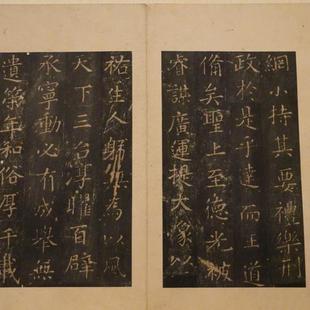 網小持其要禮樂刑
政於是乎達而王道
備矣聖上至德光被
睿謀廣運提大象以
祐生人躬無為以風
天下三台淳曜百辟
承寧動必有成舉無
遺策年和俗厚千載